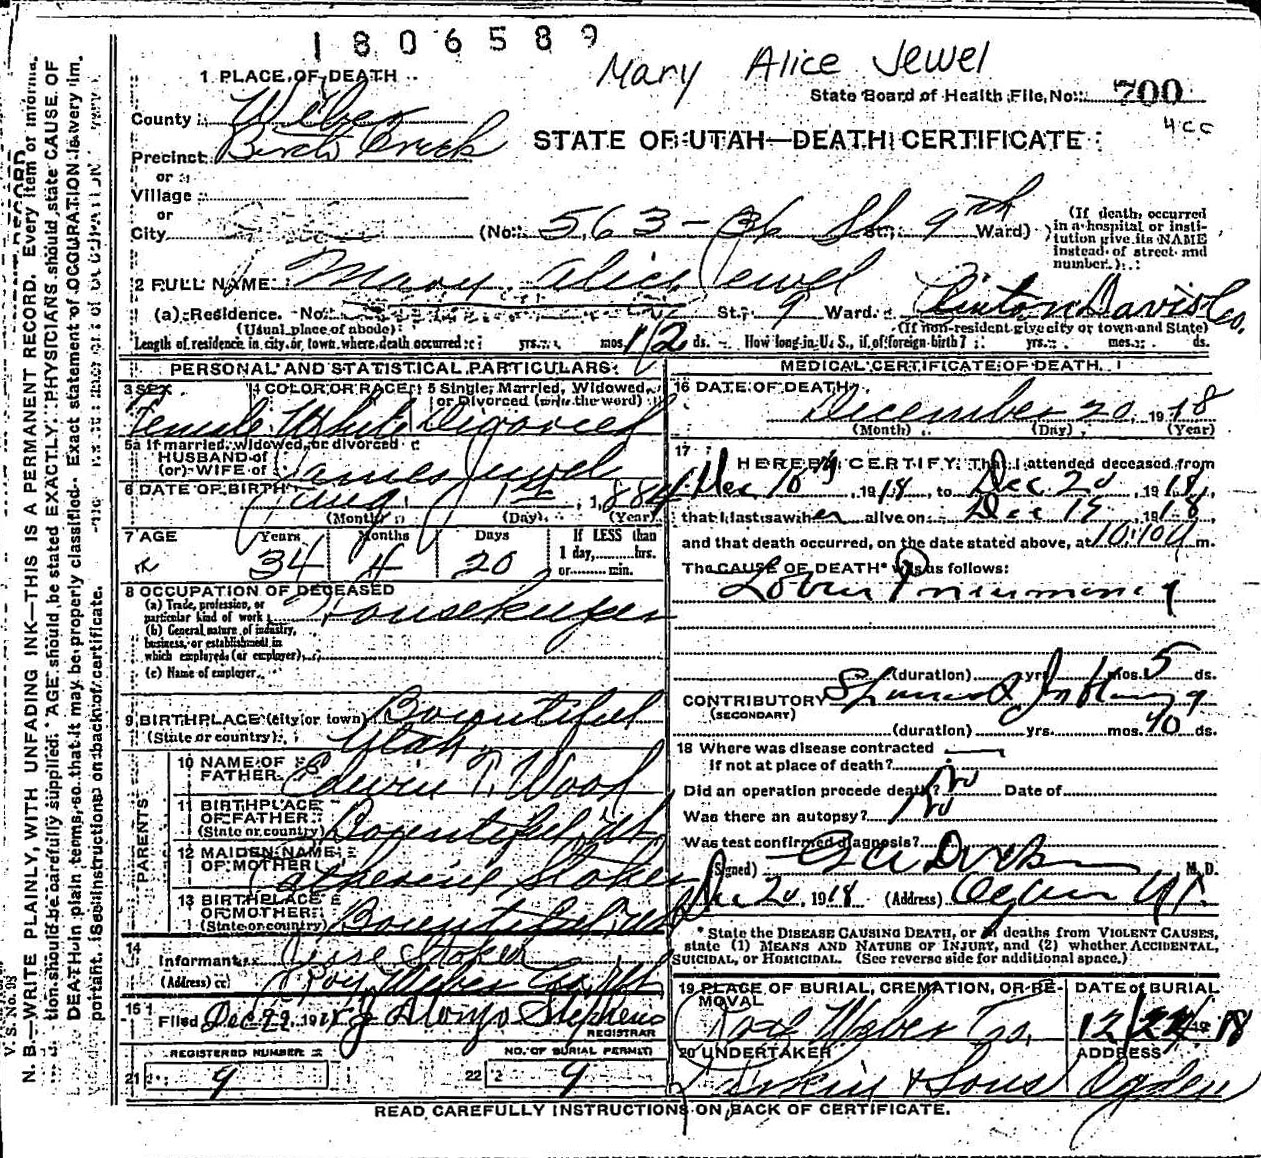 1806589
Mary Alice Jewel
State Board of Health File No. 700
4cc
STATE OF UTAH—DEATH CERTIFICATE
1 PLACE OF DEATH
County Weber
Precinct Birch Creek
or
Village
or
City (No. 563-36 St. St.; 9th Ward)
(If death occurred in a hospital or institution give its NAME instead of street and number.)
2 FULL NAME Mary Alice Jewel
(a) Residence. No. St. 9 Ward. Clinton Davis Co.
(Usual place of abode) (If non-resident give city or town and State)
Length of residence in city or town where death occurred yrs. mos. 12 ds. How long in U. S., if of foreign birth? yrs. mos. ds.
PERSONAL AND STATISTICAL PARTICULARS
3 SEX Female
4 COLOR OR RACE White
5 Single, Married, Widowed, or Divorced (write the word) Divorced
5a If married, widowed, or divorced
HUSBAND of
(or) WIFE of James Jewel
6 DATE OF BIRTH Aug. 1st, 1884
(Month) (Day) (Year)
7 AGE Years 34 Months 4 Days 20 If LESS than 1 day, hrs. or min.
8 OCCUPATION OF DECEASED
(a) Trade, profession, or particular kind of work Housekeeper
(b) General nature of industry, business, or establishment in which employed (or employer)
(c) Name of employer
9 BIRTHPLACE (city or town) Bountiful
(State or country) Utah
PARENTS
10 NAME OF FATHER Edwin T. Wood
11 BIRTHPLACE OF FATHER (State or country) Bountiful, Ut.
12 MAIDEN NAME OF MOTHER Catherine Stoker
13 BIRTHPLACE OF MOTHER (State or country) Bountiful, Ut.
14 Informant Jesse Stoker
(Address) Roy, Weber Co. Ut
15 Filed Dec 22, 1918 J Alonzo Stephens
REGISTRAR
REGISTERED NUMBER
21 9
NO. OF BURIAL PERMIT
22 9
MEDICAL CERTIFICATE OF DEATH
16 DATE OF DEATH
December 20, 1918
(Month) (Day) (Year)
17 I HEREBY CERTIFY, That I attended deceased from
Dec 10th, 1918, to Dec 20, 1918,
that I last saw her alive on Dec 19, 1918,
and that death occurred, on the date stated above, at m.
The CAUSE OF DEATH* was as follows:
Lobar Pneumonia
(duration) yrs. mos. 5 ds.
CONTRIBUTORY Influenza
(SECONDARY)
(duration) yrs. mos. 10 ds.
18 Where was disease contracted
if not at place of death?
Did an operation precede death? No Date of
Was there an autopsy? No
Was test confirmed diagnosis?
(Signed) M. D.
Dec 20, 1918 (Address) Ogden Ut
* State the DISEASE CAUSING DEATH, or in deaths from VIOLENT CAUSES, state (1) MEANS AND NATURE OF INJURY, and (2) whether ACCIDENTAL, SUICIDAL, or HOMICIDAL. (See reverse side for additional space.)
19 PLACE OF BURIAL, CREMATION, OR REMOVAL
Roy Weber Co.
DATE of BURIAL
12/22 1918
20 UNDERTAKER
Larkin & Sons
ADDRESS
Ogden
READ CAREFULLY INSTRUCTIONS ON BACK OF CERTIFICATE.
V. S. No. 98
N. B.—WRITE PLAINLY, WITH UNFADING INK—THIS IS A PERMANENT RECORD. Every item of information should be carefully supplied. AGE should be stated EXACTLY. PHYSICIANS should state CAUSE OF DEATH in plain terms, so that it may be properly classified. Exact statement of OCCUPATION is very important. See instructions on back of certificate.